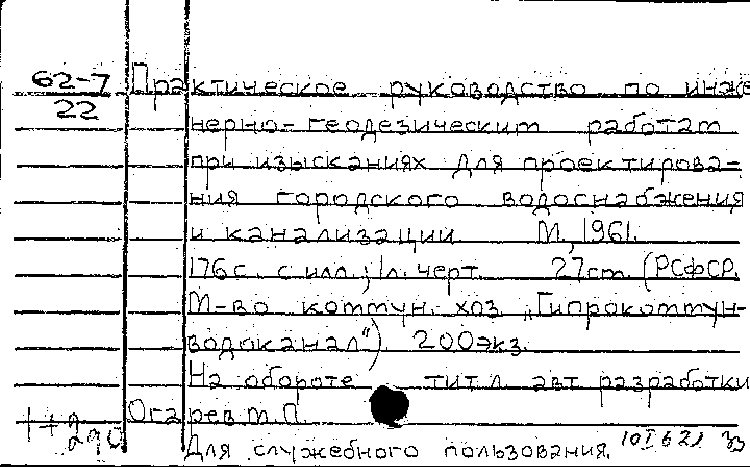 62-7 Практическое руководство по инже
22
нерно-геодезическим работам
при изысканиях для проектирова-
ния городского водоснабжения
и канализации М., 1961.
176 с. с илл.; 1 л. черт. 27 см. (РСФСР.
М-во коммун. хоз. „Гипрокоммун-
водоканал") 200 экз.
На обороте тит. л. авт. разработки
Огарев М.П.
1+290
Для служебного пользования.